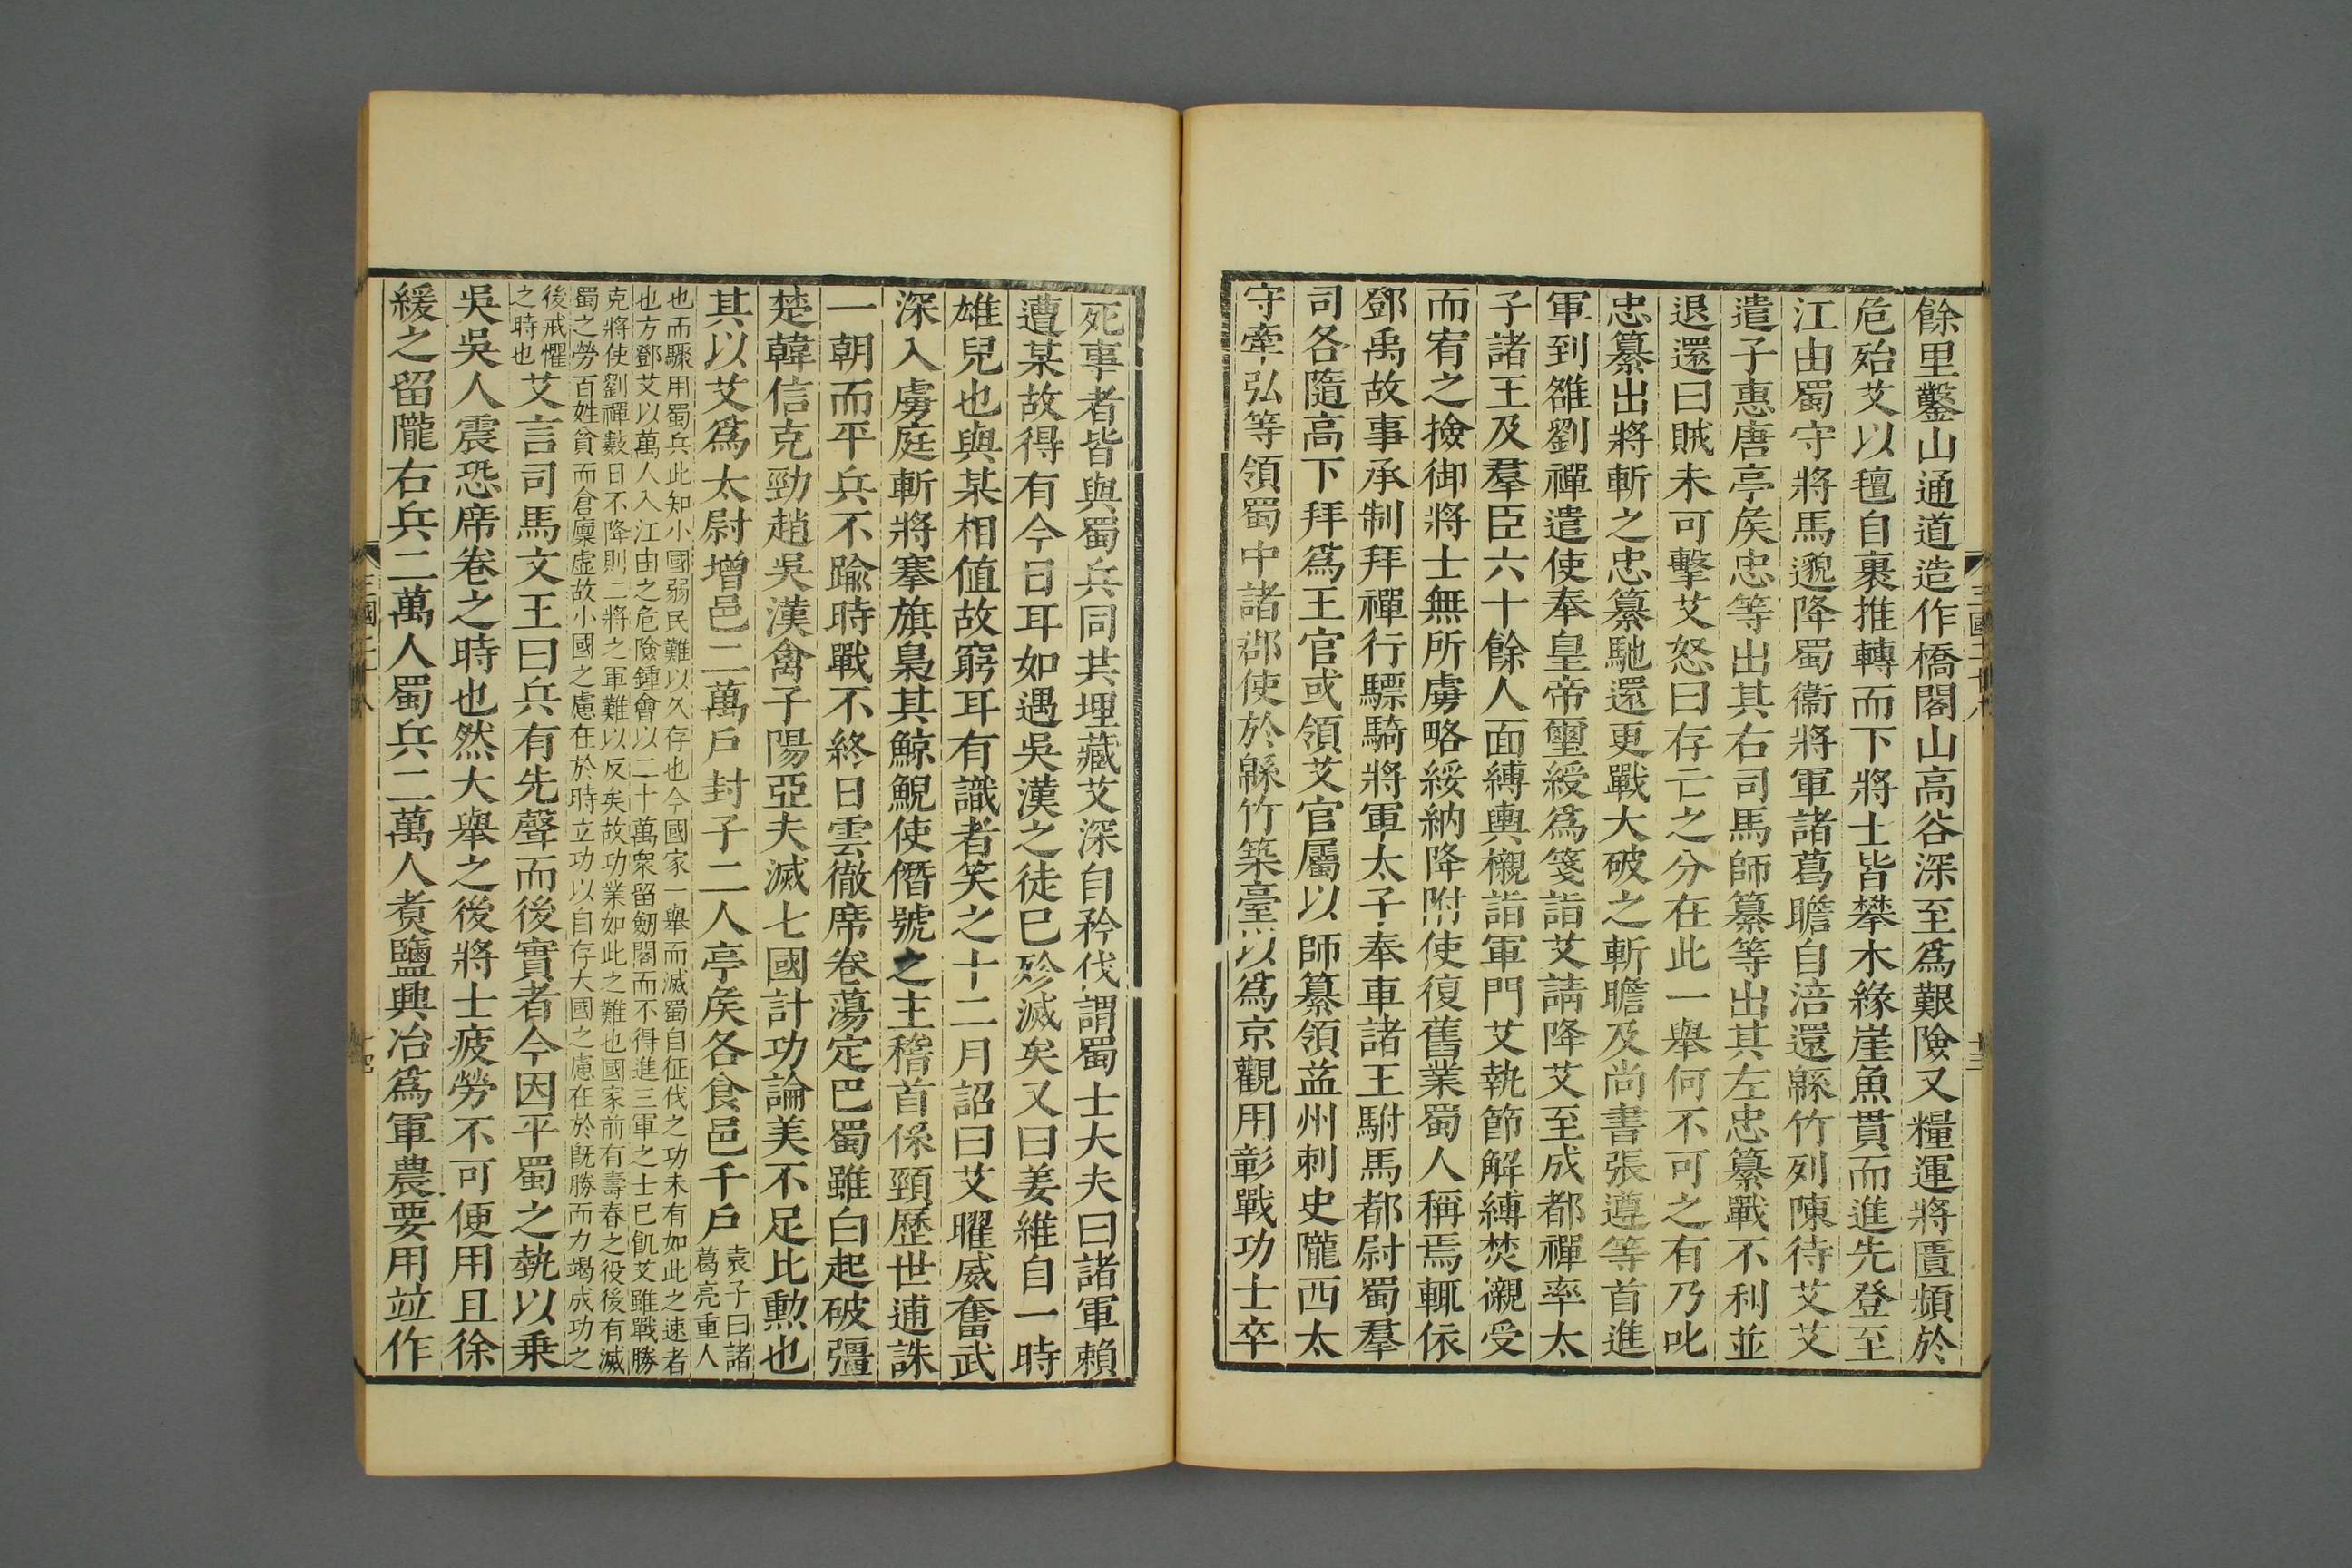 餘里鑿山通道造作橋閣山高谷深至爲艱險又糧運將匱頻於
危殆艾以氊自裹推轉而下將士皆攀木緣崖魚貫而進先登至
江由蜀守將馬邈降蜀衞將軍諸葛瞻自涪還緜竹列陳待艾艾
遣子惠唐亭矦忠等出其右司馬師纂等出其左忠纂戰不利並
退還曰賊未可擊艾怒曰存亡之分在此一舉何不可之有乃叱
忠纂出將斬之忠纂馳還更戰大破之斬瞻及尚書張遵等首進
軍到雒劉禪遣使奉皇帝璽綬爲箋詣艾請降艾至成都禪率太
子諸王及羣臣六十餘人面縛輿櫬詣軍門艾執節解縛焚櫬受
而宥之撿御將士無所虜略綏納降附使復舊業蜀人稱焉輒依
鄧禹故事承制拜禪行驃騎將軍太子奉車諸王駙馬都尉蜀羣
司各隨高下拜爲王官或領艾官屬以師纂領益州刺史隴西太
守牽弘等領蜀中諸郡使於緜竹築臺以爲京觀用彰戰功士卒
三國二十八
十三
死事者皆與蜀兵同共埋藏艾深自矜伐謂蜀士大夫曰諸軍賴
遭某故得有今日耳如遇吳漢之徒已殄滅矣又曰姜維自一時
雄兒也與某相值故窮耳有識者笑之十二月詔曰艾曜威奮武
深入虜庭斬將搴旗梟其鯨鯢使僭號之主稽首係頸歷世逋誅
一朝而平兵不踰時戰不終日雲徹席卷蕩定巴蜀雖白起破彊
楚韓信克勁趙吳漢禽子陽亞夫滅七國計功論美不足比勲也
其以艾爲太尉增邑二萬戶封子二人亭矦各食邑千戶
袁子曰諸
葛亮重人
也而驟用蜀兵此知小國弱民難以久存也今國家一舉而滅蜀自征伐之功未有如此之速者
也方鄧艾以萬人入江由之危險鍾會以二十萬衆留劒閣而不得進三軍之士已飢艾雖戰勝
克將使劉禪數日不降則二將之軍難以反矣故功業如此之難也國家前有壽春之役後有滅
蜀之勞百姓貧而倉廩虛故小國之慮在於時立功以自存大國之慮在於旣勝而力竭成功之
後戒懼
之時也
艾言司馬文王曰兵有先聲而後實者今因平蜀之埶以乗
吳吳人震恐席卷之時也然大舉之後將士疲勞不可便用且徐
緩之留隴右兵二萬人蜀兵二萬人煑鹽興冶爲軍農要用竝作
三國二十八